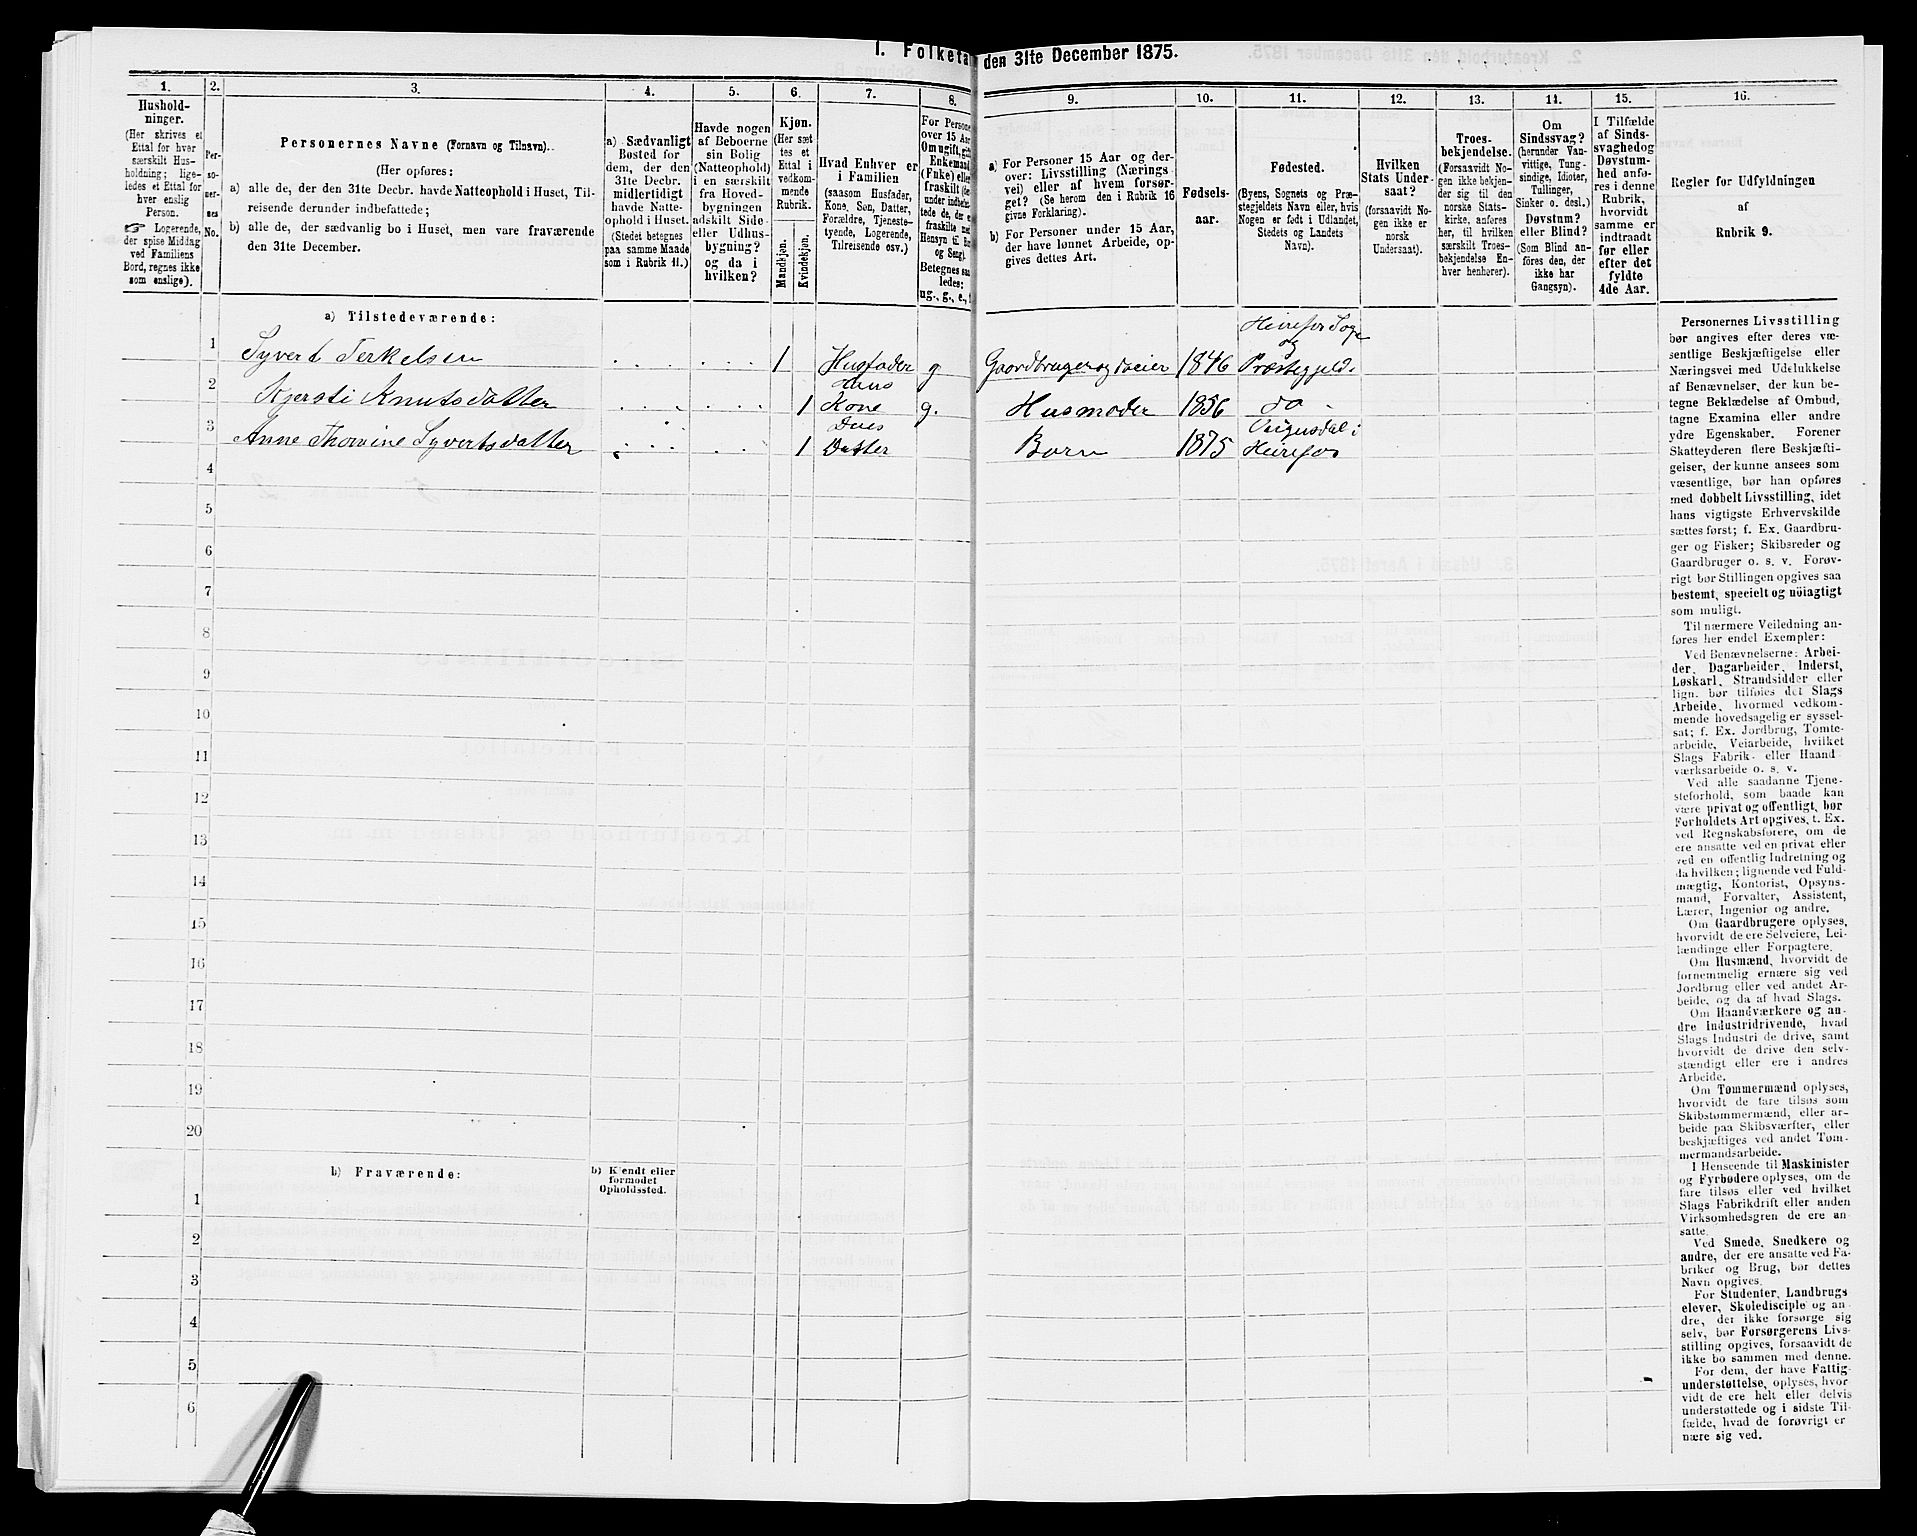 1. Folketa
den 31te December 1875.
1.
Hushold-
ninger.
(Her skrives et
Ettal for hver
særskilt Hus-
holdning; lige-
ledes et Ettal for
hver enslig
Person.
☞ Logerende,
der spise Middag
ved Familiens
Bord, regnes ikke
som enslige).
2.
Per-
so-
ner-
nes
No.
3.
Personernes Navne (Fornavn og Tilnavn).
(Her opføres:
a) alle de, der den 31te Decbr. havde Natteophold i Huset, Til-
reisende derunder indbefattede;
b) alle de, der sædvanlig bo i Huset, men vare fraværende
den 31te December.
4.
a) Sædvanligt
Bosted for
dem, der den
31te Decbr.
midlertidigt
havde Natte-
ophold i Huset.
(Stedet betegnes
paa samme Maade
som i Rubrik 11.)
5.
Havde nogen
af Beboerne
sin Bolig
(Natteophold)
i en særskilt
fra Hoved-
bygningen
adskilt Side-
eller Udhus-
bygning?
og da i
hvilken?
6.
Kjøn.
(Her sæt
tes et
Ettal i
vedkom-
mende
Rubrik.
Mandkjøn.
Kvindekjøn.
7.
Hvad Enhver er
i Familien
(saasom Husfader,
Kone, Søn, Datter,
Forældre, Tjeneste-
tyende, Logerende,
Tilreisende osv.)
8.
For Persone
over 15 Aar
Om ugift, gift
Enkemand
(Enke) eller
fraskilt (der-
under indbefat-
tede de, der e
fraskilte med
Hensyn til Bo
og Seng).
Betegnes saa
ledes:
ug., g., e., f.
9.
a) For Personer 15 Aar og der-
over: Livsstilling (Nærings
vei) eller af hvem forsør-
get? (Se herom den i Rubrik 16
givne Forklaring).
b) For Personer under 15 Aar,
der have lønnet Arbeide, op-
gives dettes Art.
10.
Fødsels-
aar.
11.
Fødested.
(Byens, Sognets og Præ-
stegjeldets Navn eller, hvis
Nogen er født i Udlandet,
Stedets og Landets
Navn).
12.
Hvilken
Stats Under-
saat?
(forsaavidt No-
gen ikke er
norsk
Undersaat).
13.
Troes-
bekjendelse.
(Forsaavidt No-
gen ikke bekjen-
der sig til den
norske Stats-
kirke, anføres
her, til hvilken
særskilt Troes-
bekjendelse En-
hver henhører).
14.
Om
Sindssvag?
(herunder Van-
vittige, Tung-
sindige, Idioter,
Tullinger,
Sinker o. desl.)
Døvstum?
eller Blind?
(Som Blind an-
føres den, der
ikke har
Gangsyn).
15.
I Tilfælde
af Sinds-
svaghed og
Døvstum-
hed anfø-
res i denne
Rubrik,
hvorvidt
samme er
indtraadt
før eller
efter det
fyldte
4de Aar.
16.
Regler for Udfyldningen
af
Rubrik 9.
a) Tilstedeværende:
Heirefos Sogn
og
1 Syvert Terkelsen 1 Husfader g Gaardbruger og Selveier 1846 Præstegjeld.
Hans
2 Kjersti Knutsdatter 1 Kone g. Husmoder 1856 do
Deres
3 Anne Thomine Syvertsdatter 1 Datter Barn 1875 Heirefos
4
5
6
7
8
9
10
11
12
13
14
15
16
17
18
19
20
b) Fraværende:
b) Kjendt eller
formodet
Opholdssted.
1
2
3
4
5
6
Personernes Livsstilling
bør angives efter deres væ-
sentlige Beskjæftigelse eller
Næringsvei med Udelukkelse
af Benævnelser, der kun be-
tegne Beklædelse af Ombud,
tagne Examina eller andre
ydre Egenskaber. Forener
Skatteyderen flere Beskjæfti-
gelser, der kunne ansees som
væsentlige, bør han opføres
med dobbelt Livsstilling, idet
hans vigtigste Erhvervskilde
sættes først; f. Ex. Gaardbru-
ger og Fisker; Skibsreder og
Gaardbruger o. s. v. Forøv-
rigt bør Stillingen opgives saa
bestemt, specielt og nøiagtigt
som muligt.
Til nærmere Veiledning an-
føres her endel Exempler:
Ved Benævnelserne: Arbei-
der, Dagarbeider, Inderst,
Løskarl, Strandsidder eller
lign. bør tilføies det Slags
Arbeide, hvormed vedkom-
mende hovedsagelig er syssel-
sat; f. Ex. Jordbrug, Tomte-
arbeide, Veiarbeide, hvilket
Slags Fabrik- eller Haand-
værksarbeide o. s. v.
Ved alle saadanne Tjene-
steforhold, som baade kan
være privat og offentligt, bør
Forholdets Art opgives, f. Ex.
ved Regnskabsførere, om de
ere ansatte ved en privat eller
ved en offentlig Indretning og
da hvilken; lignende ved Fuld-
mægtig, Kontorist, Opsyns-
mand, Forvalter, Assistent,
Lærer, Ingeniør og andre.
Om Gaardbrugere oplyses,
hvorvidt de ere Selveiere, Lei-
lændinge eller Forpagtere.
Om Husmænd, hvorvidt de
fornemmelig ernære sig ved
Jordbrug eller ved andet Ar-
beide, og da af hvad Slags.
Om Haandværkere og an-
dre Industridrivende, hvad
Slags Industri de drive, samt
hvorvidt de drive den selv-
stændigt eller ere i andres
Arbeide.
Om Tømmermænd oplyses,
hvorvidt de fare tilsøs som
Skibstømmermænd, eller ar-
beide paa Skibsværfter, eller
beskjæftiges ved andet Tøm-
mermandsarbeide.
I Henseende til Maskinister
og Fyrbødere oplyses, om de
fare tilsøs eller ved hvilket
Slags Fabrikdrift eller anden
Virksomhedsgren de ere an-
satte.
Ved Smede, Snedkere og
andre, der ere ansatte ved Fa-
briker og Brug, bør dettes
Navn opgives.
For Studenter, Landbrugs
elever, Skoledisciple og an-
dre, der ikke forsørge sig
selv, bør Forsørgerens Livs-
stilling opgives, forsaavidt de
ikke bo sammen med denne.
For dem, der have Fattig-
understøttelse, oplyses, hvor-
vidt de ere helt eller delvis
understøttede og i sidste Til-
fælde, hvad de forøvrigt er
nære sig ved.